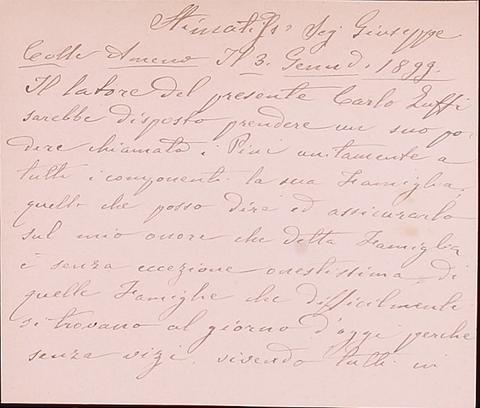 Stimatis. Sig Giuseppe
Colle Ameno Il 3. Genn. 1899.
Il latore del presente Carlo Zuffi
sarebbe disposto prendere un suo po-
dere chiamato i Pini unitamente a
tutti i componenti la sua Famiglia,
quello che posso dire ed assicurarlo
sul mio onore che detta Famiglia
è senza eccezione onestissima, di
quelle Famiglie che difficilmente
si trovano al giorno d'oggi perche
senza vizi, vivendo tutti in